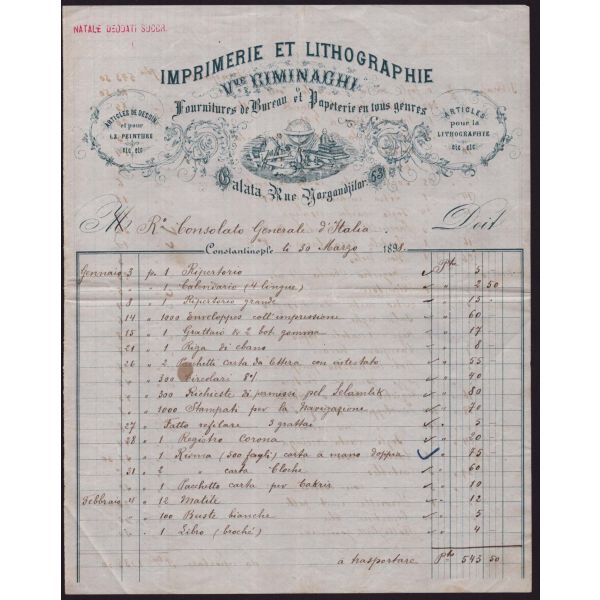 NATALE DEODATI SUCCR.
IMPRIMERIE ET LITHOGRAPHIE
Vve CIMINAGHI
Fournitures de Bureau et Papeterie en tous genres
ARTICLES DE DESSIN
et pour
LA PEINTURE
etc, etc
ARTICLES
pour la
LITHOGRAPHIE
etc, etc
Galata, Rue Yorgandjilar 53
M Ro Consolato Generale d'Italia Doit
Constantinople le 30 Marzo 1891.
Gennaio 3 p. 1 Repertorio Pts 5 -
" " 1 Calendario (4 lingue) " 2 50
8 " 1 Repertorio grande " 15 -
14 " 1000 Enveloppes coll'impressione " 60
15 " 1 Grattaio & 2 bot. gomma " 17
21 " 1 Riga di ebano " 8
26 " 2 Pacchetti carta da lettera con intestato " 55
" 500 Circolari 8° " 40
" 300 Richieste di permessi pel Selamlik " 80
" 1000 Stampati per la Navigazione " 70
27 " Fatto refilare 3 grattai " 5
28 " 1 Registro Corona " 20
" 1 Risma (500 fogli) carta a mano doppia " 75
31 " 2 " carta Cloche " 60
" 1 Pacchetto carta per " 10
Febbraio " 12 Matite " 12
" 100 Buste bianche " 5
" 1 Libro (broché) " 4 -
a trasportare Pts 543 50